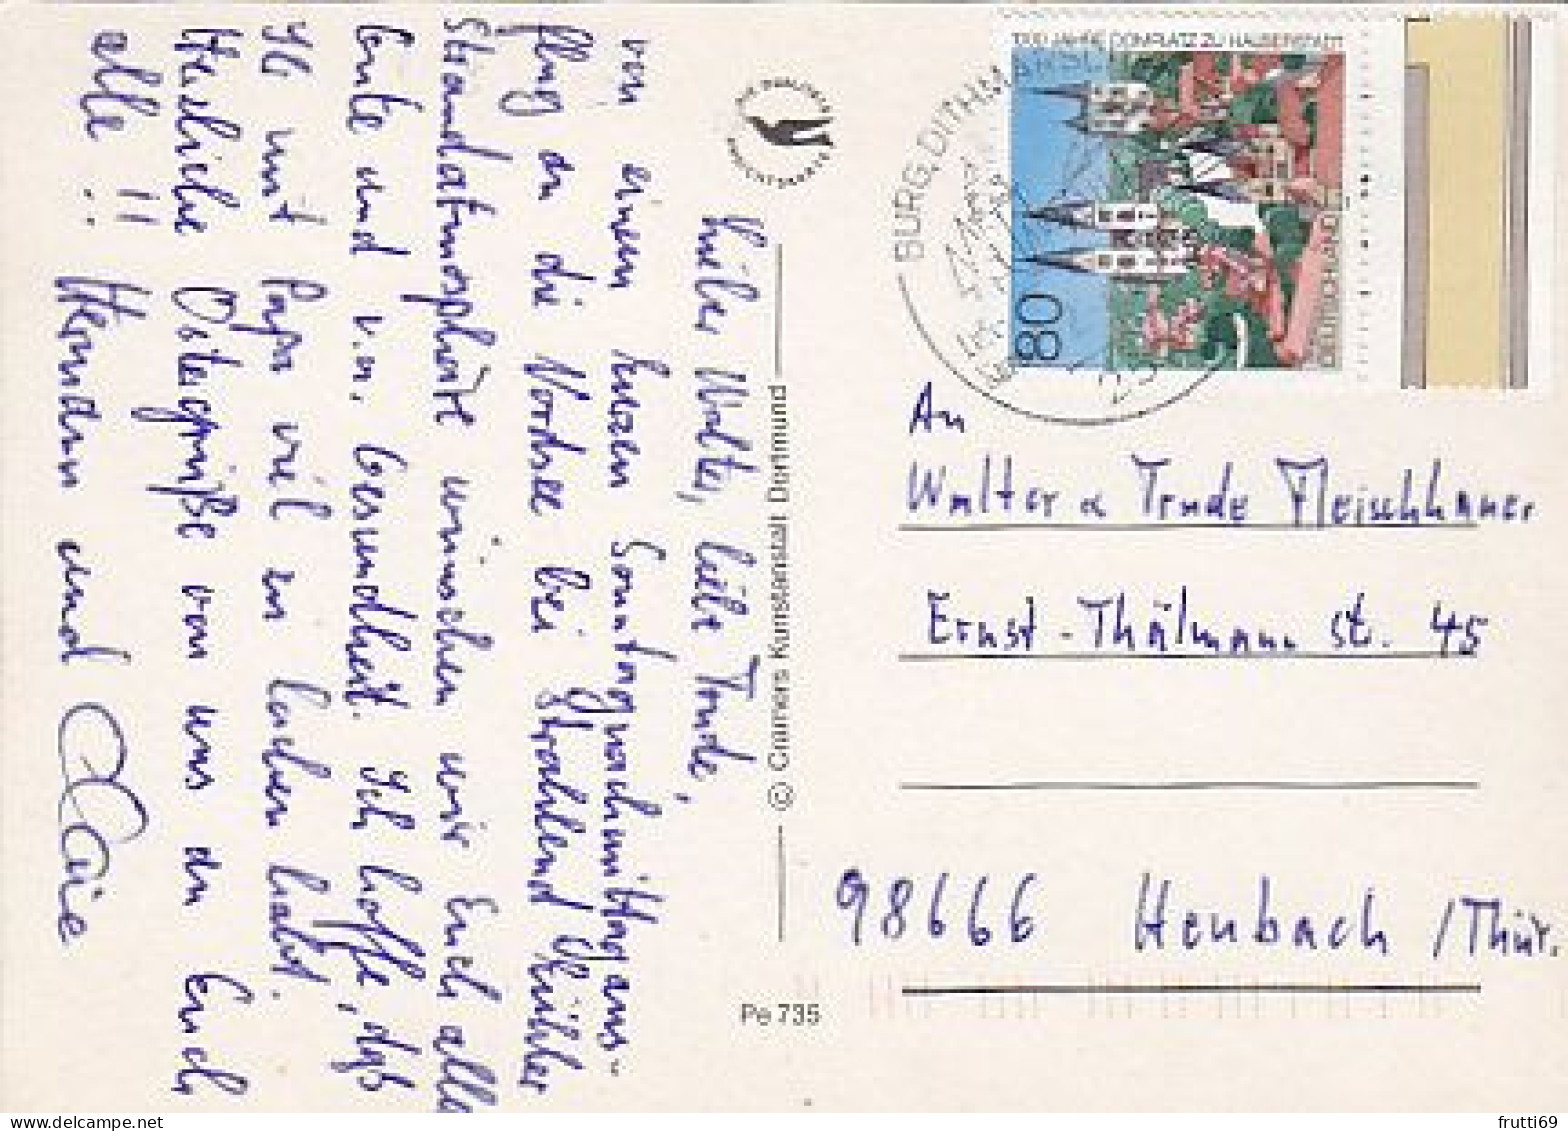 Lieber Walter, liebe Trude,
von einem kurzen Sonntagnachmittagaus-
flug an die Nordsee bei strahlend kühler
Strandatmosphäre wünschen wir Euch alles
Gute und v.a. Gesundheit. Ich hoffe, daß
Ihr mit Papa viel zu lachen habt.
Herzliche Ostergrüße von uns an Euch
alle!! Hermann und
© Cramers Kunstanstalt Dortmund
Pe 735
BURG, DITHMARSCHEN
1000 JAHRE DOMPLATZ ZU HALBERSTADT
80
DEUTSCHLAND
An
Walter & Trude Fleischhauer
Ernst-Thälmann St. 45
98666 Heubach /Thür.
frutti69
delcampe.net